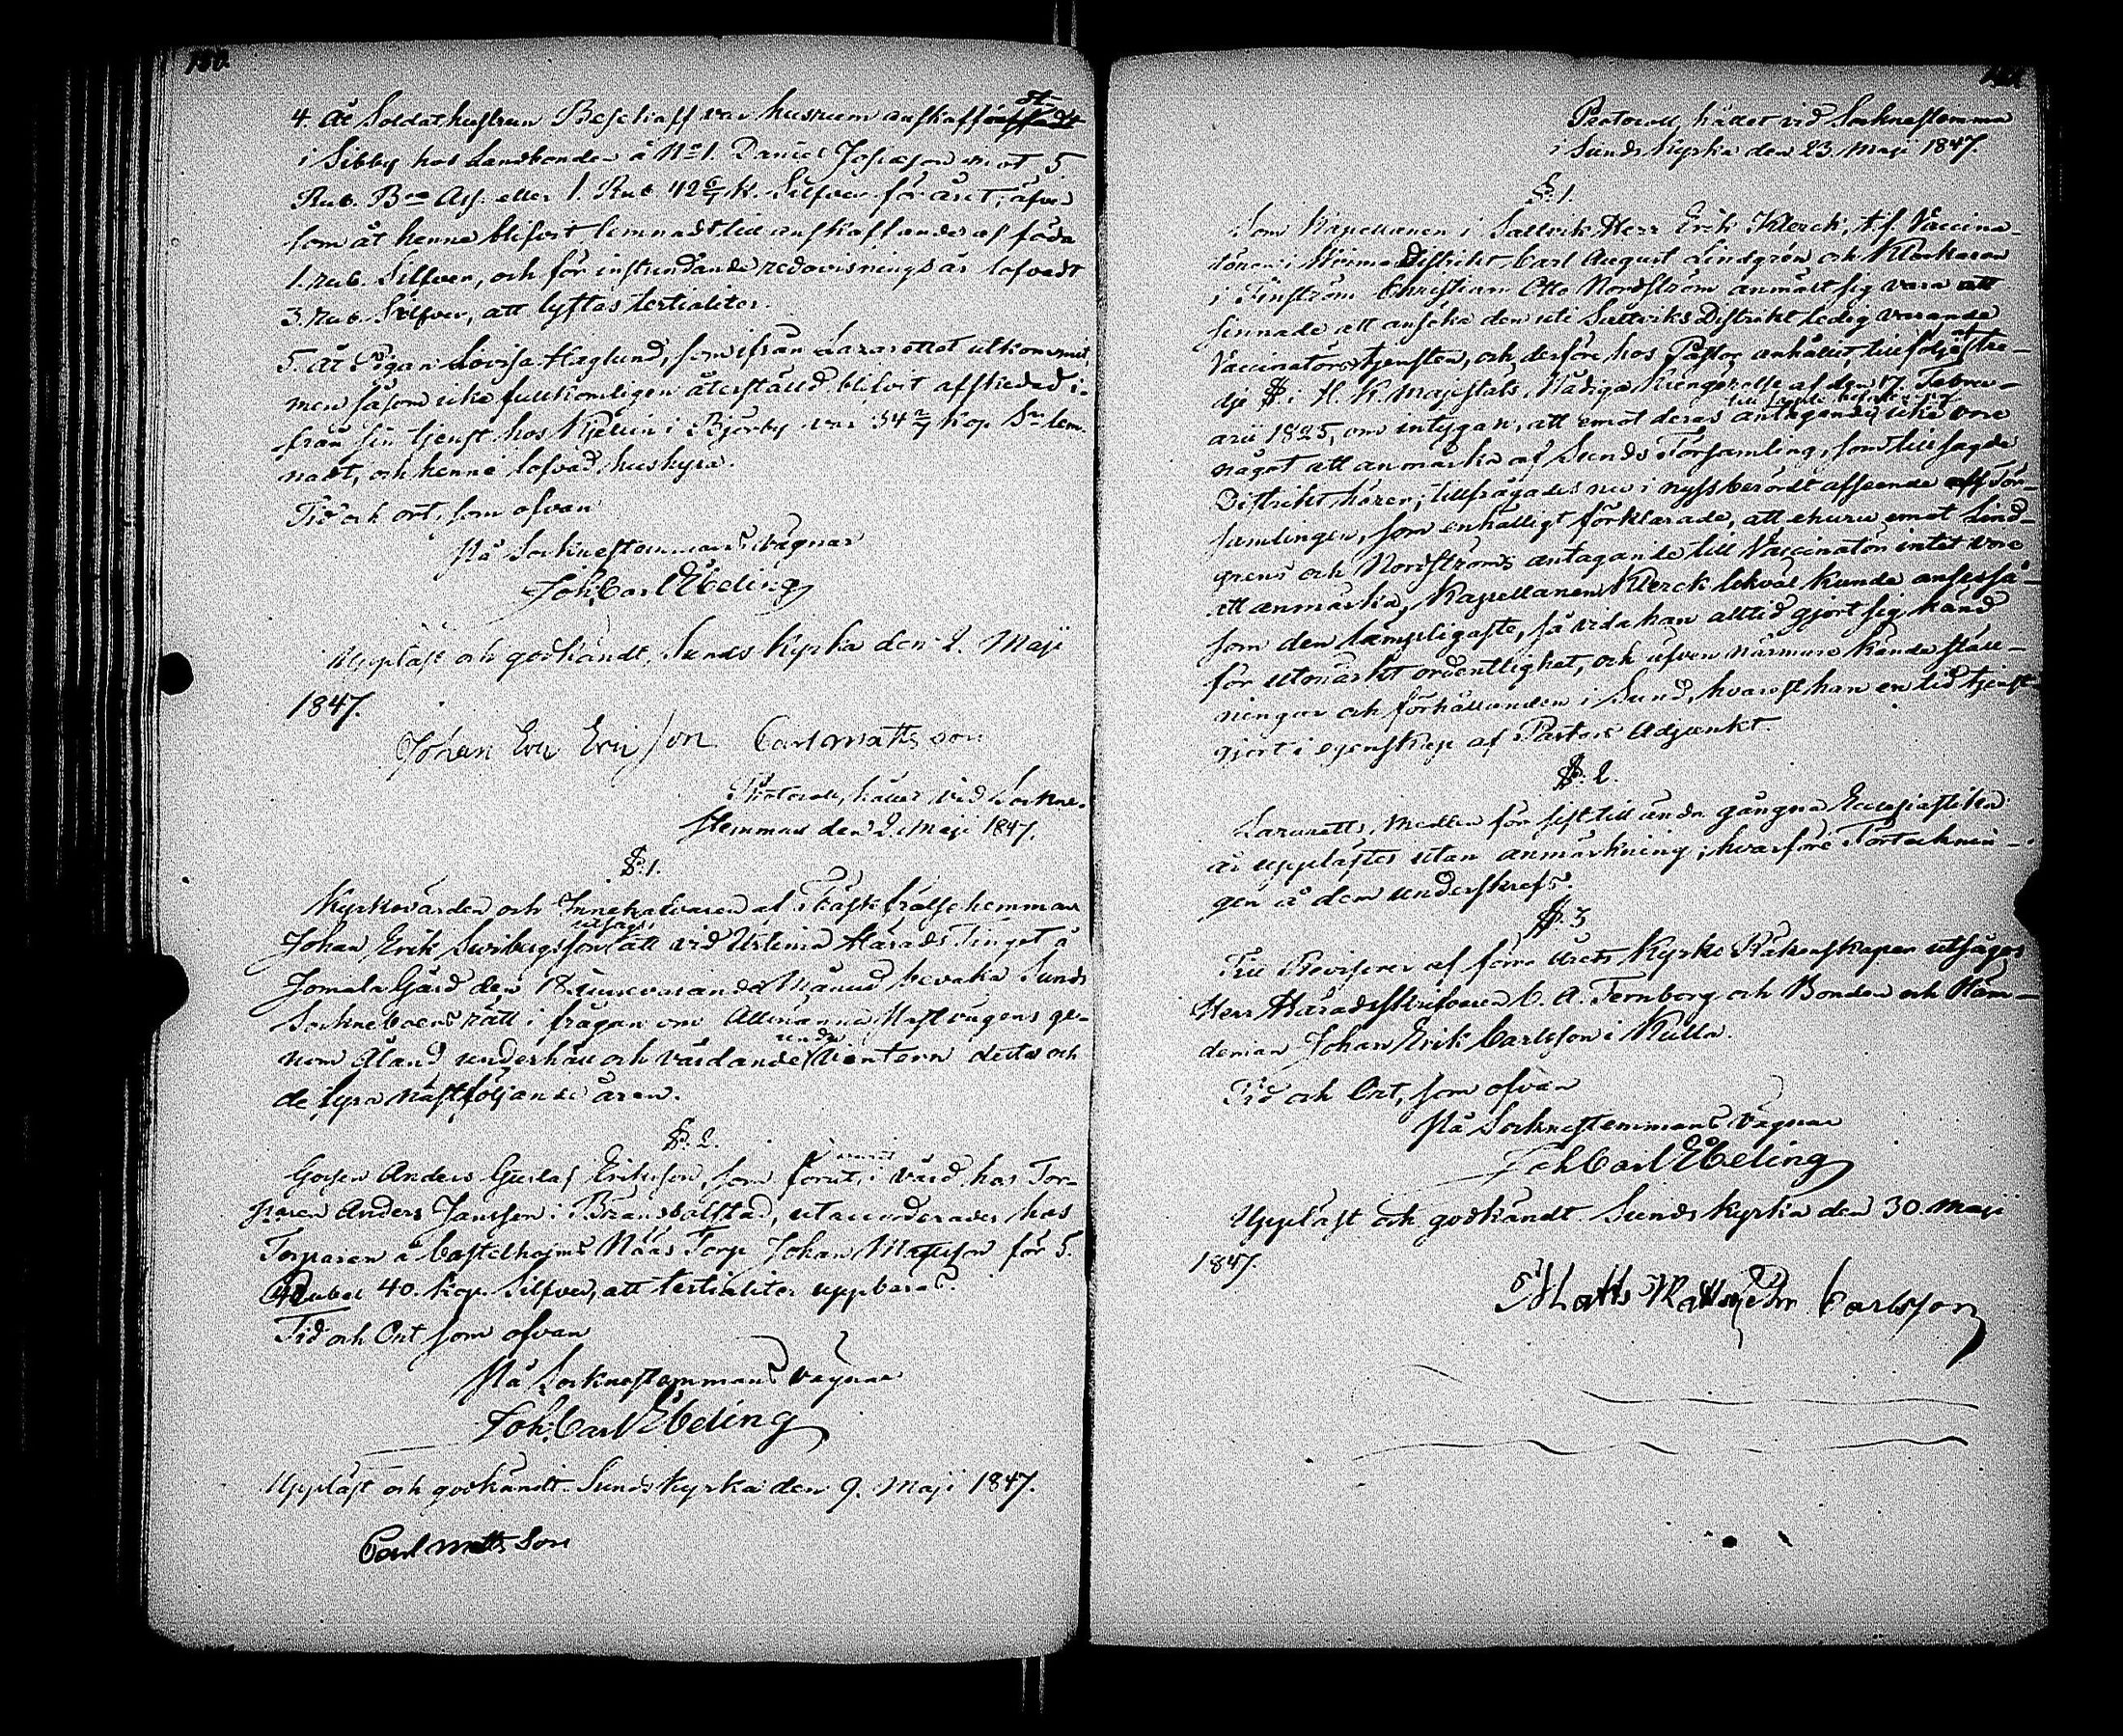 180.
4. Åt Soldathustrun Beschiaff var husrum anskaffat
i Sibby hos Landbonden å No 1. Daniel Josefsson mot 5
Rub. Bco Ass. eller 1. Rub 42 6/7 k. Silfver för året; äfven
som åt henne blifvit lemnadt till anskaffandes af föda
1. rub. Silfver, och för instundande redovisnings år lofvadt
3. rub. Silfver, att lyftas tertialiter.
5. Åt Pigan Lovisa Haglund, som ifrån Lazarettet utkommit,
men såsom icke fullkomligen återställd blifvit afskedad i-
från sin tjenst hos Kjellin i Björby var 34 2/7 kop. Sr lem-
nadt, och henne lofvad, hushyra.
Tid och ort, som ofvan
På Socknestemmans vägnar
Joh. Carl Ebeling
Uppläst och godkändt, Sunds Kyrka den 2. Maji
1847.
Johan Eric Ericsson Carl Mattsson
Protocoll, hållet vid Sockne-
stemman den 2. Maji 1847.
§. 1.
Kyrkovärden och Innehafvaren af Träsk frälsehemman
Johan Erik Swibergsson utsågs att vid Urtima Härads Tinget å
Jomala Gård den 18. innevarande Månad bevaka Sunds
Sockneboers rätt i frågan om Allmänna Postvägens ge-
nom Åland underhåll och vårdande under Ventern detta och
de fyra nästföljande åren.
§. 2.
Gossen Anders Gustaf Eriksson, som förut varit i vård hos Tor-
paren Anders Jansson i Brändbolstad, utackorderades hos
Torparen å Castelholms Näs Torp Johan Mattsson för 5.
Rubel 40. kop. Silfver, att tertialiter uppbäras.
Tid och Ort som ofvan
På Socknestemmans vägnar
Joh. Carl Ebeling
Uppläst och godkändt. Sunds Kyrka den 9. Maji 1847.
Carl Mattsson
181
Protocoll, hållet vid Socknestemma
i Sunds Kyrka den 23. Maji 1847.
§. 1.
Som Kapellanen i Saltvik Herr Erik Klerck, t.f. Vaccina-
tören i Distrikt Carl August Lindgrén och Klockaren
i Finström Christian Otto Nordström anmält sig vara att
sinnade att ansöka den uti Saltviks Distrikt ledig varande
Vaccinatörstjensten, och derföre hos Pastor anhållit, till följe af tre-
dje § i H. K. Majestäts Nådiga Kungörelse af den 17. Febru-
arii 1825, om intygan, att emot deras antagande till icke vore
något att anmärka af Sunds Församling, som till sagde
Distrikt hörer; tillfrågades nu i nyssberördt afseende För-
samlingen, som enhälligt förklarade, att ehuru emot Lind-
grens och Nordströms antagande till Vaccinatör intet vore
att anmärka, Kapellanen Klerck likväl kunde anses så-
som den lämpligaste, så vida han alltid gjort sig känd
för utmärkt ordentlighet, och äfven närmare kände ställ-
ningar och förhållanden i Sund, hvarest han en tid tjenst-
gjort i egenskap af Pastors Adjunkt.
§. 2.
Lazaretts Medlen för sist till ända gångna Ecclesiastika
år upplästes utan anmärkning; hvarföre Förteckni-
gen å dem underskrefs.
§. 3
Till Revisorer af förra årets Kyrko Räkenskaper utsågos
Herr Häradsskrifvaren C. A. Fernborg och Bonden och Näm-
deman Johan Erik Carlsson i Kulla.
Tid och Ort, som ofvan
På Socknestemmans Vägnar
Joh Carl Ebeling
Uppläst och godkändt. Sunds Kyrka den 30. Maji
1847.
Matts Carlsson